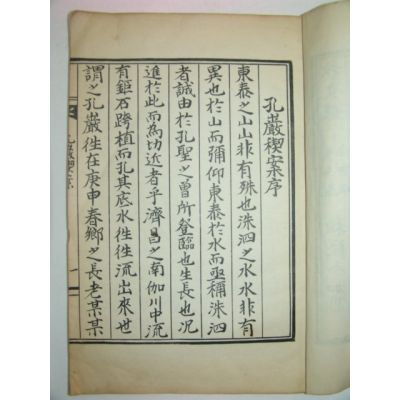 孔巖稧案序
東泰之山山非有殊也洙泗之水水非有
異也於山而彌仰東泰於水而亟稱洙泗
者誠由於孔聖之曾所登臨也生長也况
進於此而為功近者乎濟昌之南伽川中流
有鉅石跨植而孔其底水徃徃流出來世
謂之孔巖徃在庚申春鄉之長老某某
孔巖稧案
一